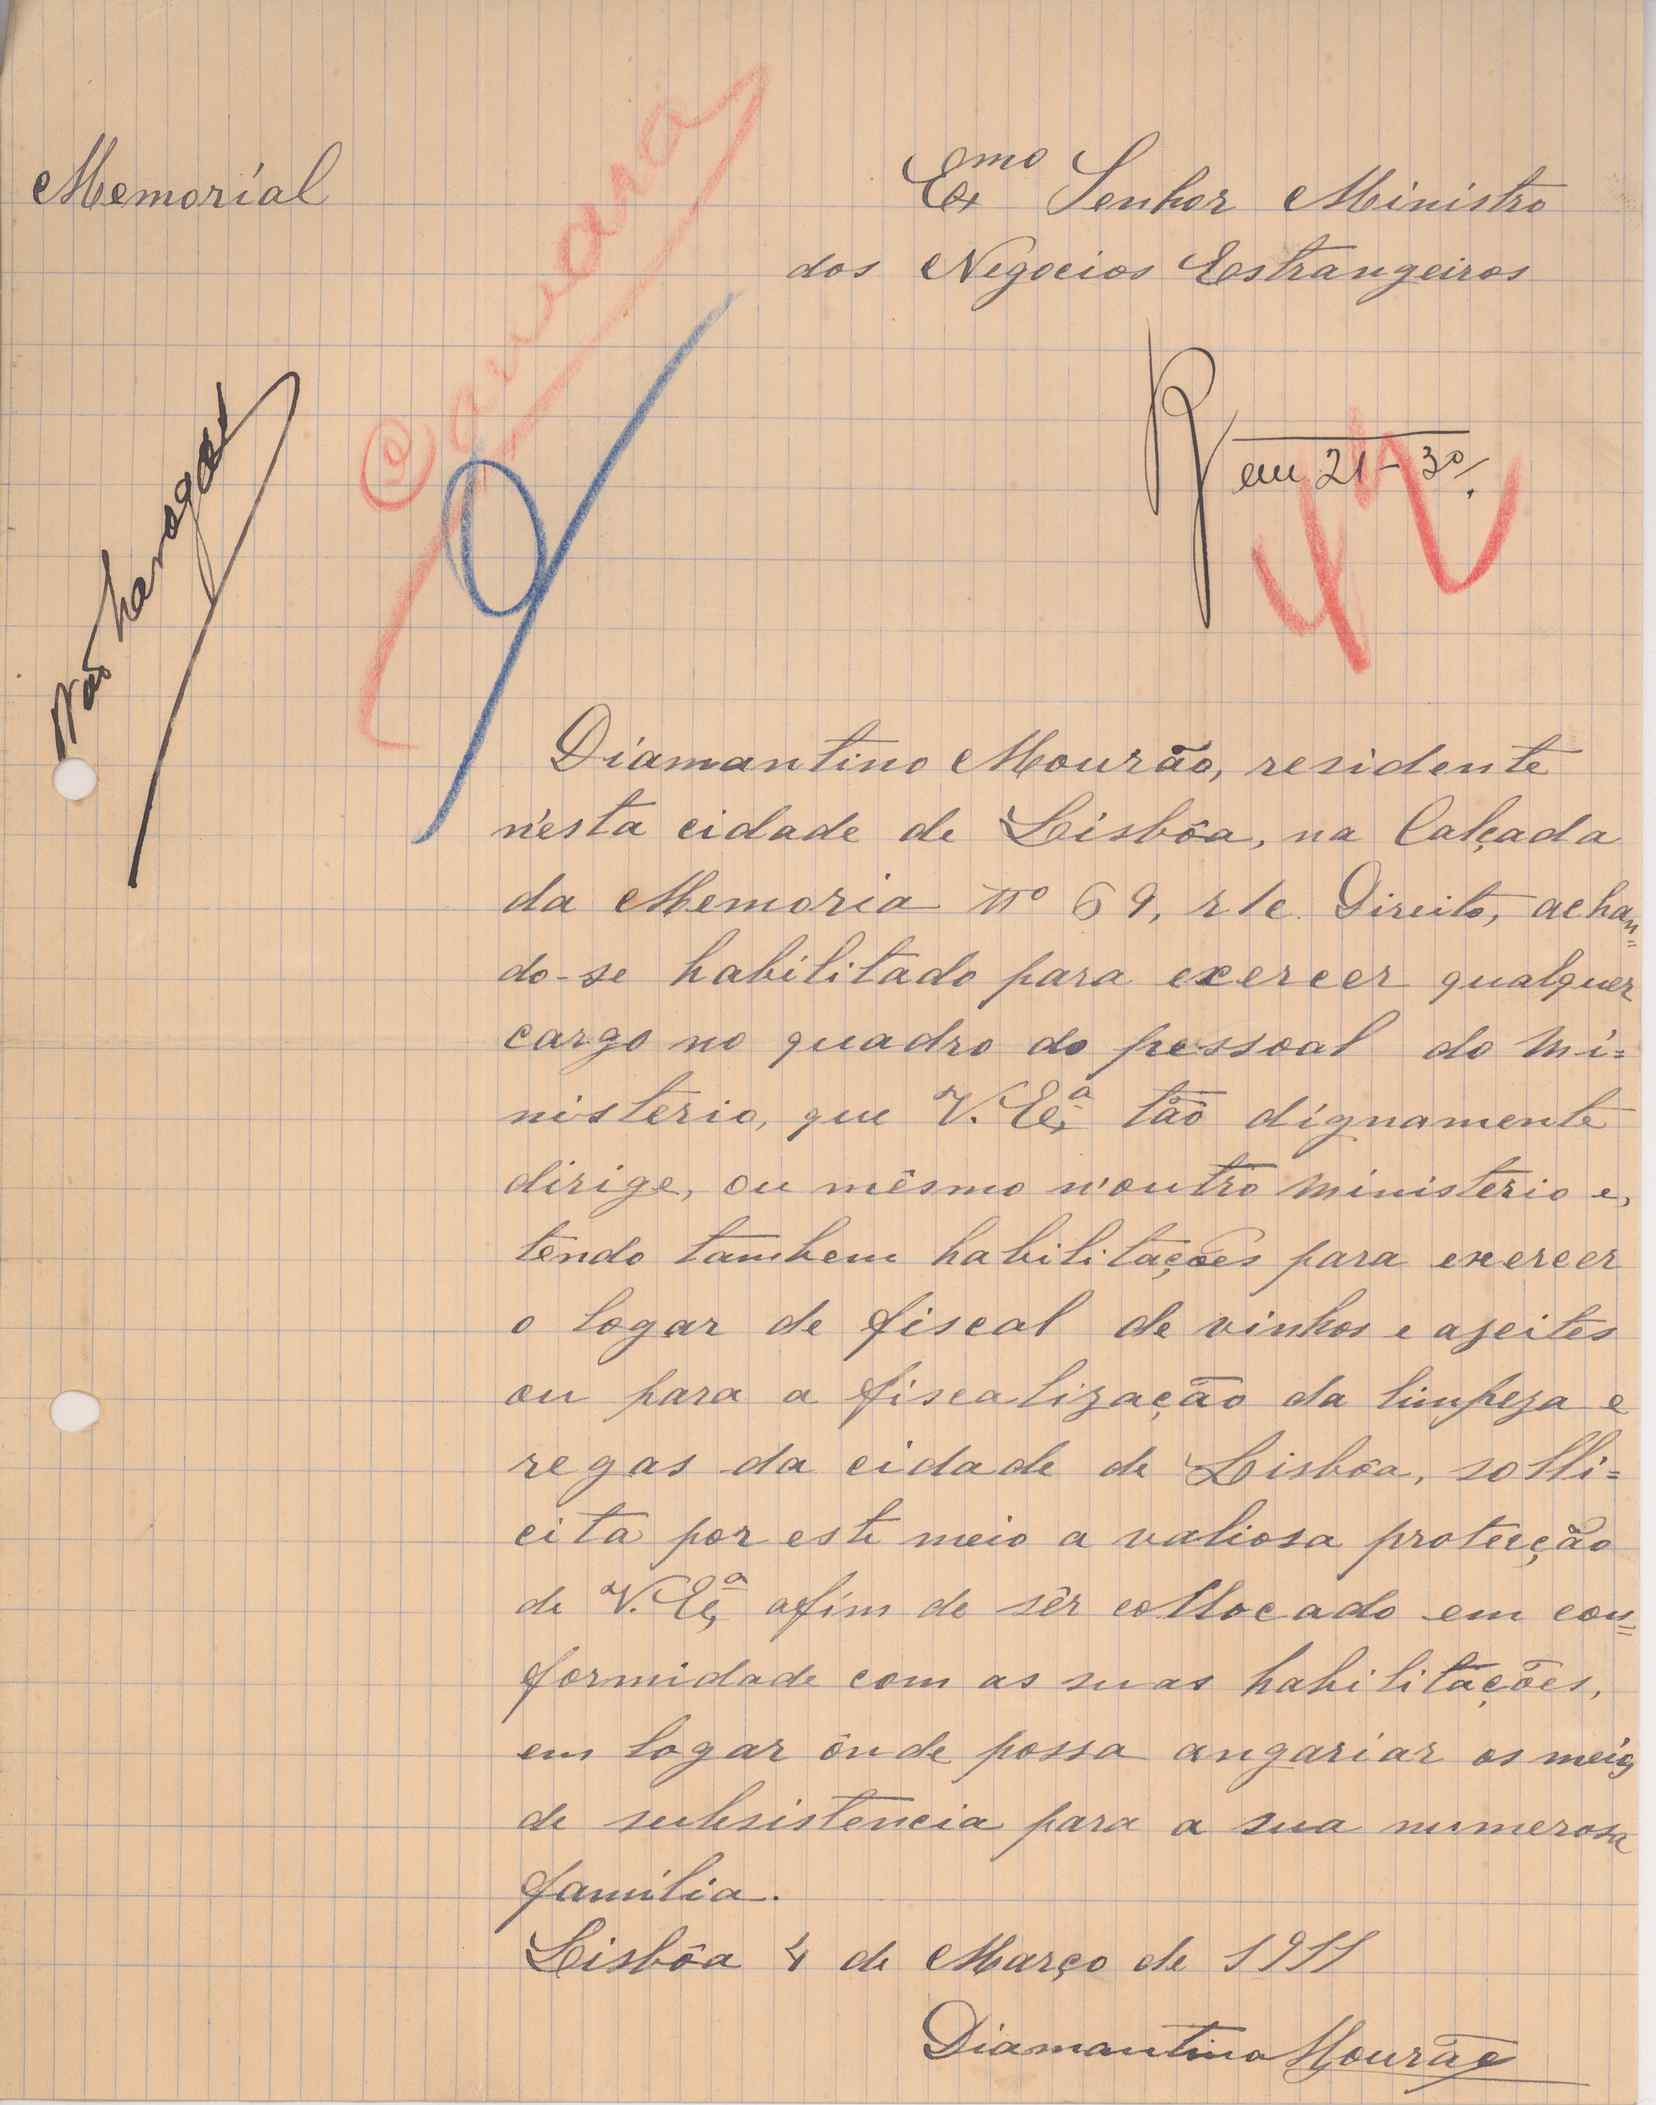 Memorial
Exmo Senhor Ministro
dos Negocios Estrangeiros
Camara
Não ha vagas
9
R em 21-3º
Diamantino Mourão, residente
n'esta cidade de Lisbôa, na Calçada
da Memoria nº 69, r/c Direito, achan=
do-se habilitado para exercer qualquer
cargo no quadro do pessoal do mi=
nisterio, que V. Exª tão dignamente
dirige, ou mêsmo n'outro ministerio e,
tendo tambem habilitações para exercer
o logar de fiscal de vinhos e azeites
ou para a fiscalização da limpeza e
regas da cidade de Lisbôa, solli=
cita por este meio a valiosa protecção
de V. Exª afim de sêr collocado em con=
formidade com as suas habilitações,
em logar ônde possa angariar os meios
de subsistencia para a sua numerosa
familia.
Lisbôa 4 de Março de 1911
Diamantino Mourão